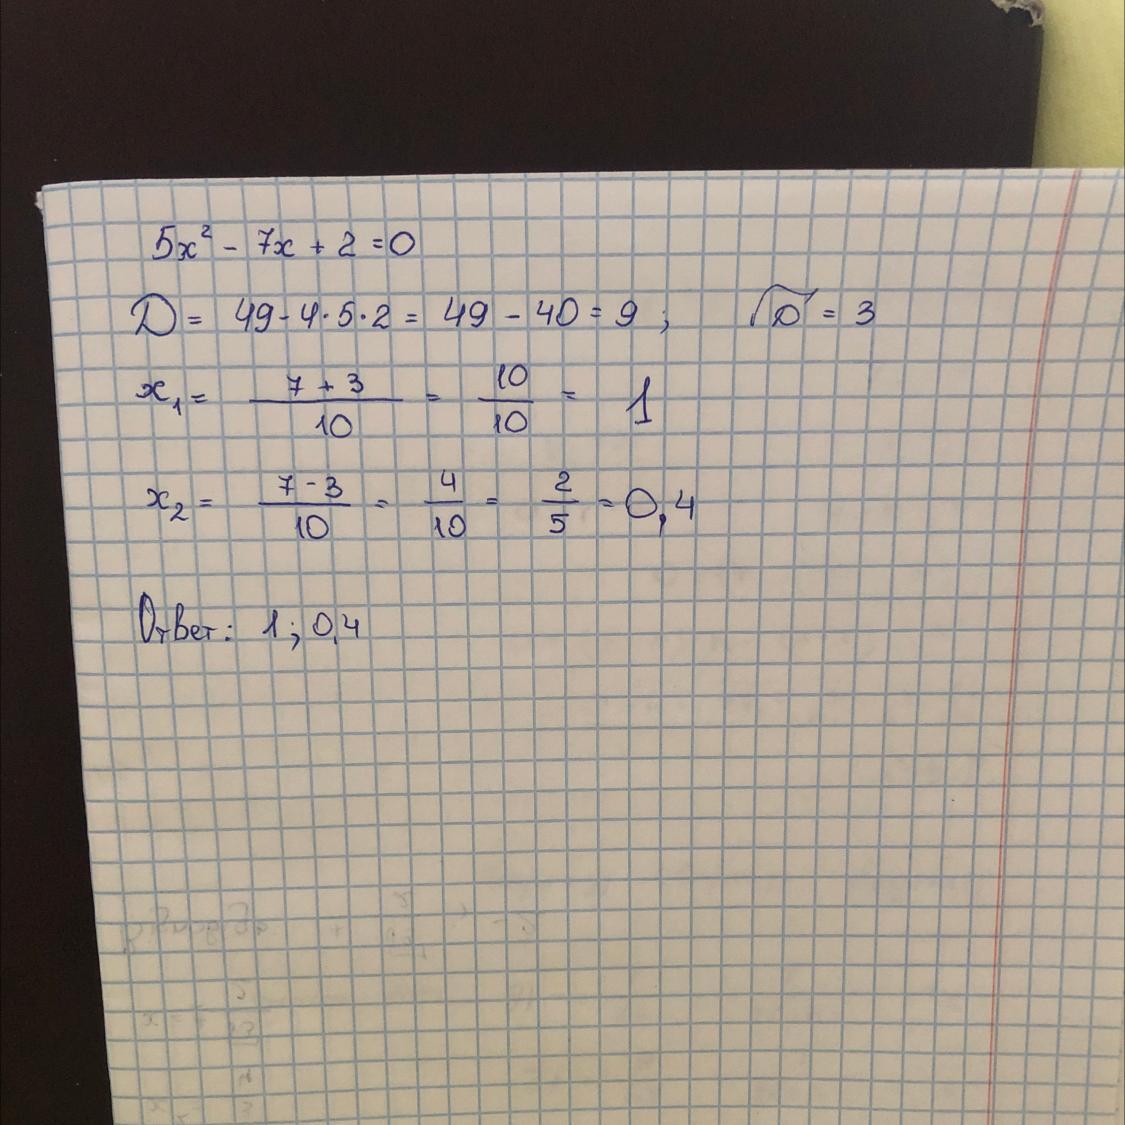 5x² - 7x + 2 = 0
D = 49 - 4·5·2 = 49 - 40 = 9 ; √D = 3
x₁ = (7 + 3)/10 = 10/10 = 1
x₂ = (7 - 3)/10 = 4/10 = 2/5 = 0,4
Ответ: 1 ; 0,4